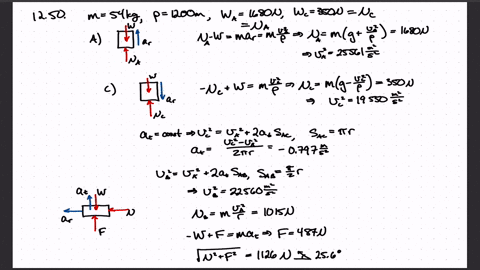 12.50. m=54kg, ρ=1200m, W_A=1680N, W_C=350N=N_C
=N_A
A) W a_r N_A N_A-W=ma_r=m v_A²/ρ ⇒ N_A=m(g+v_A²/ρ)=1680N
⇒ v_A²=25561 m²/s²
C) W a_r N_C -N_C+W=m v_C²/ρ ⇒ N_C=m(g-v_C²/ρ)=350N
⇒ v_C²=19550 m²/s²
a_t=const ⇒ v_C²=v_A²+2a_t s_AC, s_AC=πr
a_t=(v_C²-v_A²)/2πr=-0.797 m/s²
v_B²=v_A²+2a_t s_AB, s_AB=π/2 r
⇒ v_B²=22560 m²/s²
a_t W a_r N F N_B=m v_B²/r=1015N
-W+F=ma_t ⇒ F=487N
√N²+F²=1126N 25.6°